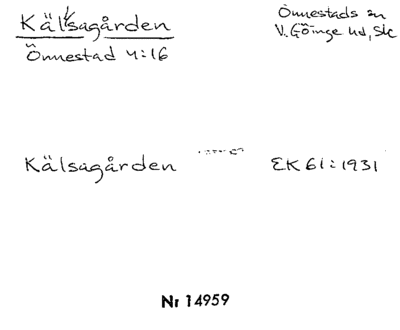 Kälsagården
Önnestads sn
Önnestad 4:16
V. Göinge hd, Sk
Kälsagården EK 61:1931
Nr 14959